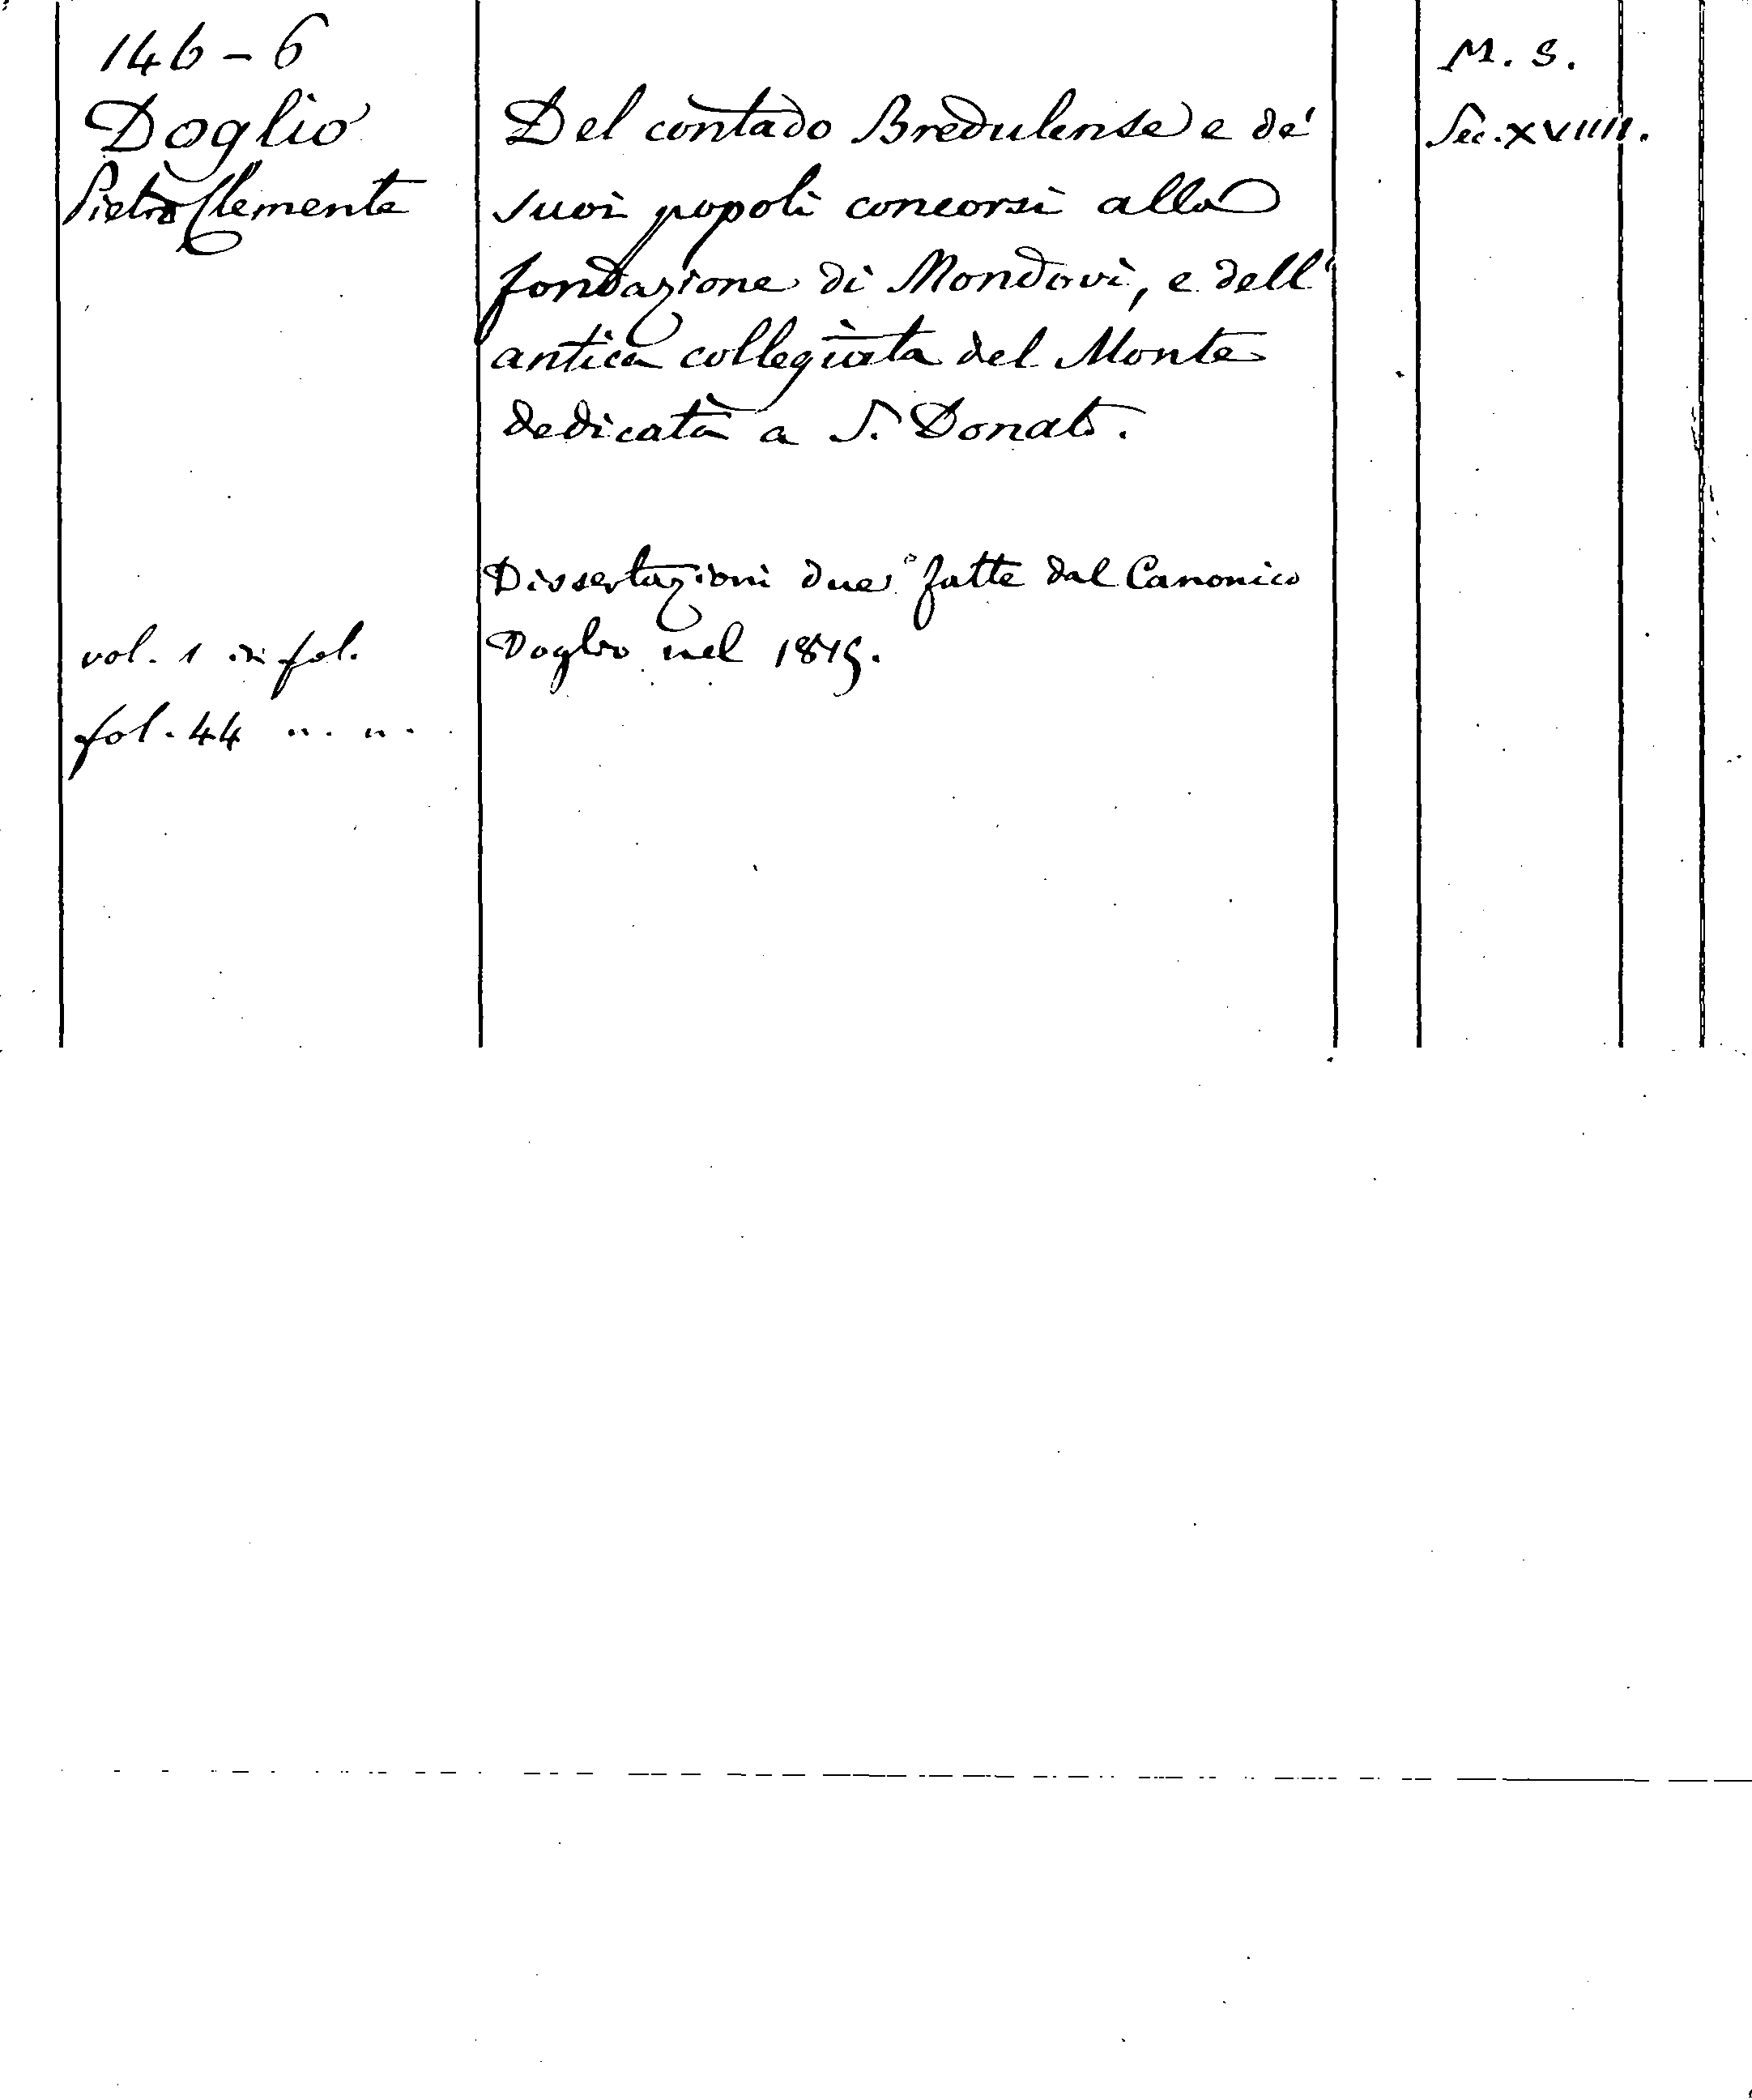 146-6
Doglio
Pietro Clemente
vol. 1 in fol.
fol. 44 n. n.
Del contado Bredulense e de'
suoi popoli concorsi alla
fondazione di Mondovì, e dell'
antica collegiata del Monte
dedicata a S. Donato.
Dissertazioni due fatte dal Canonico
Doglio nel 1819.
M. S.
Sec. XVIIII.